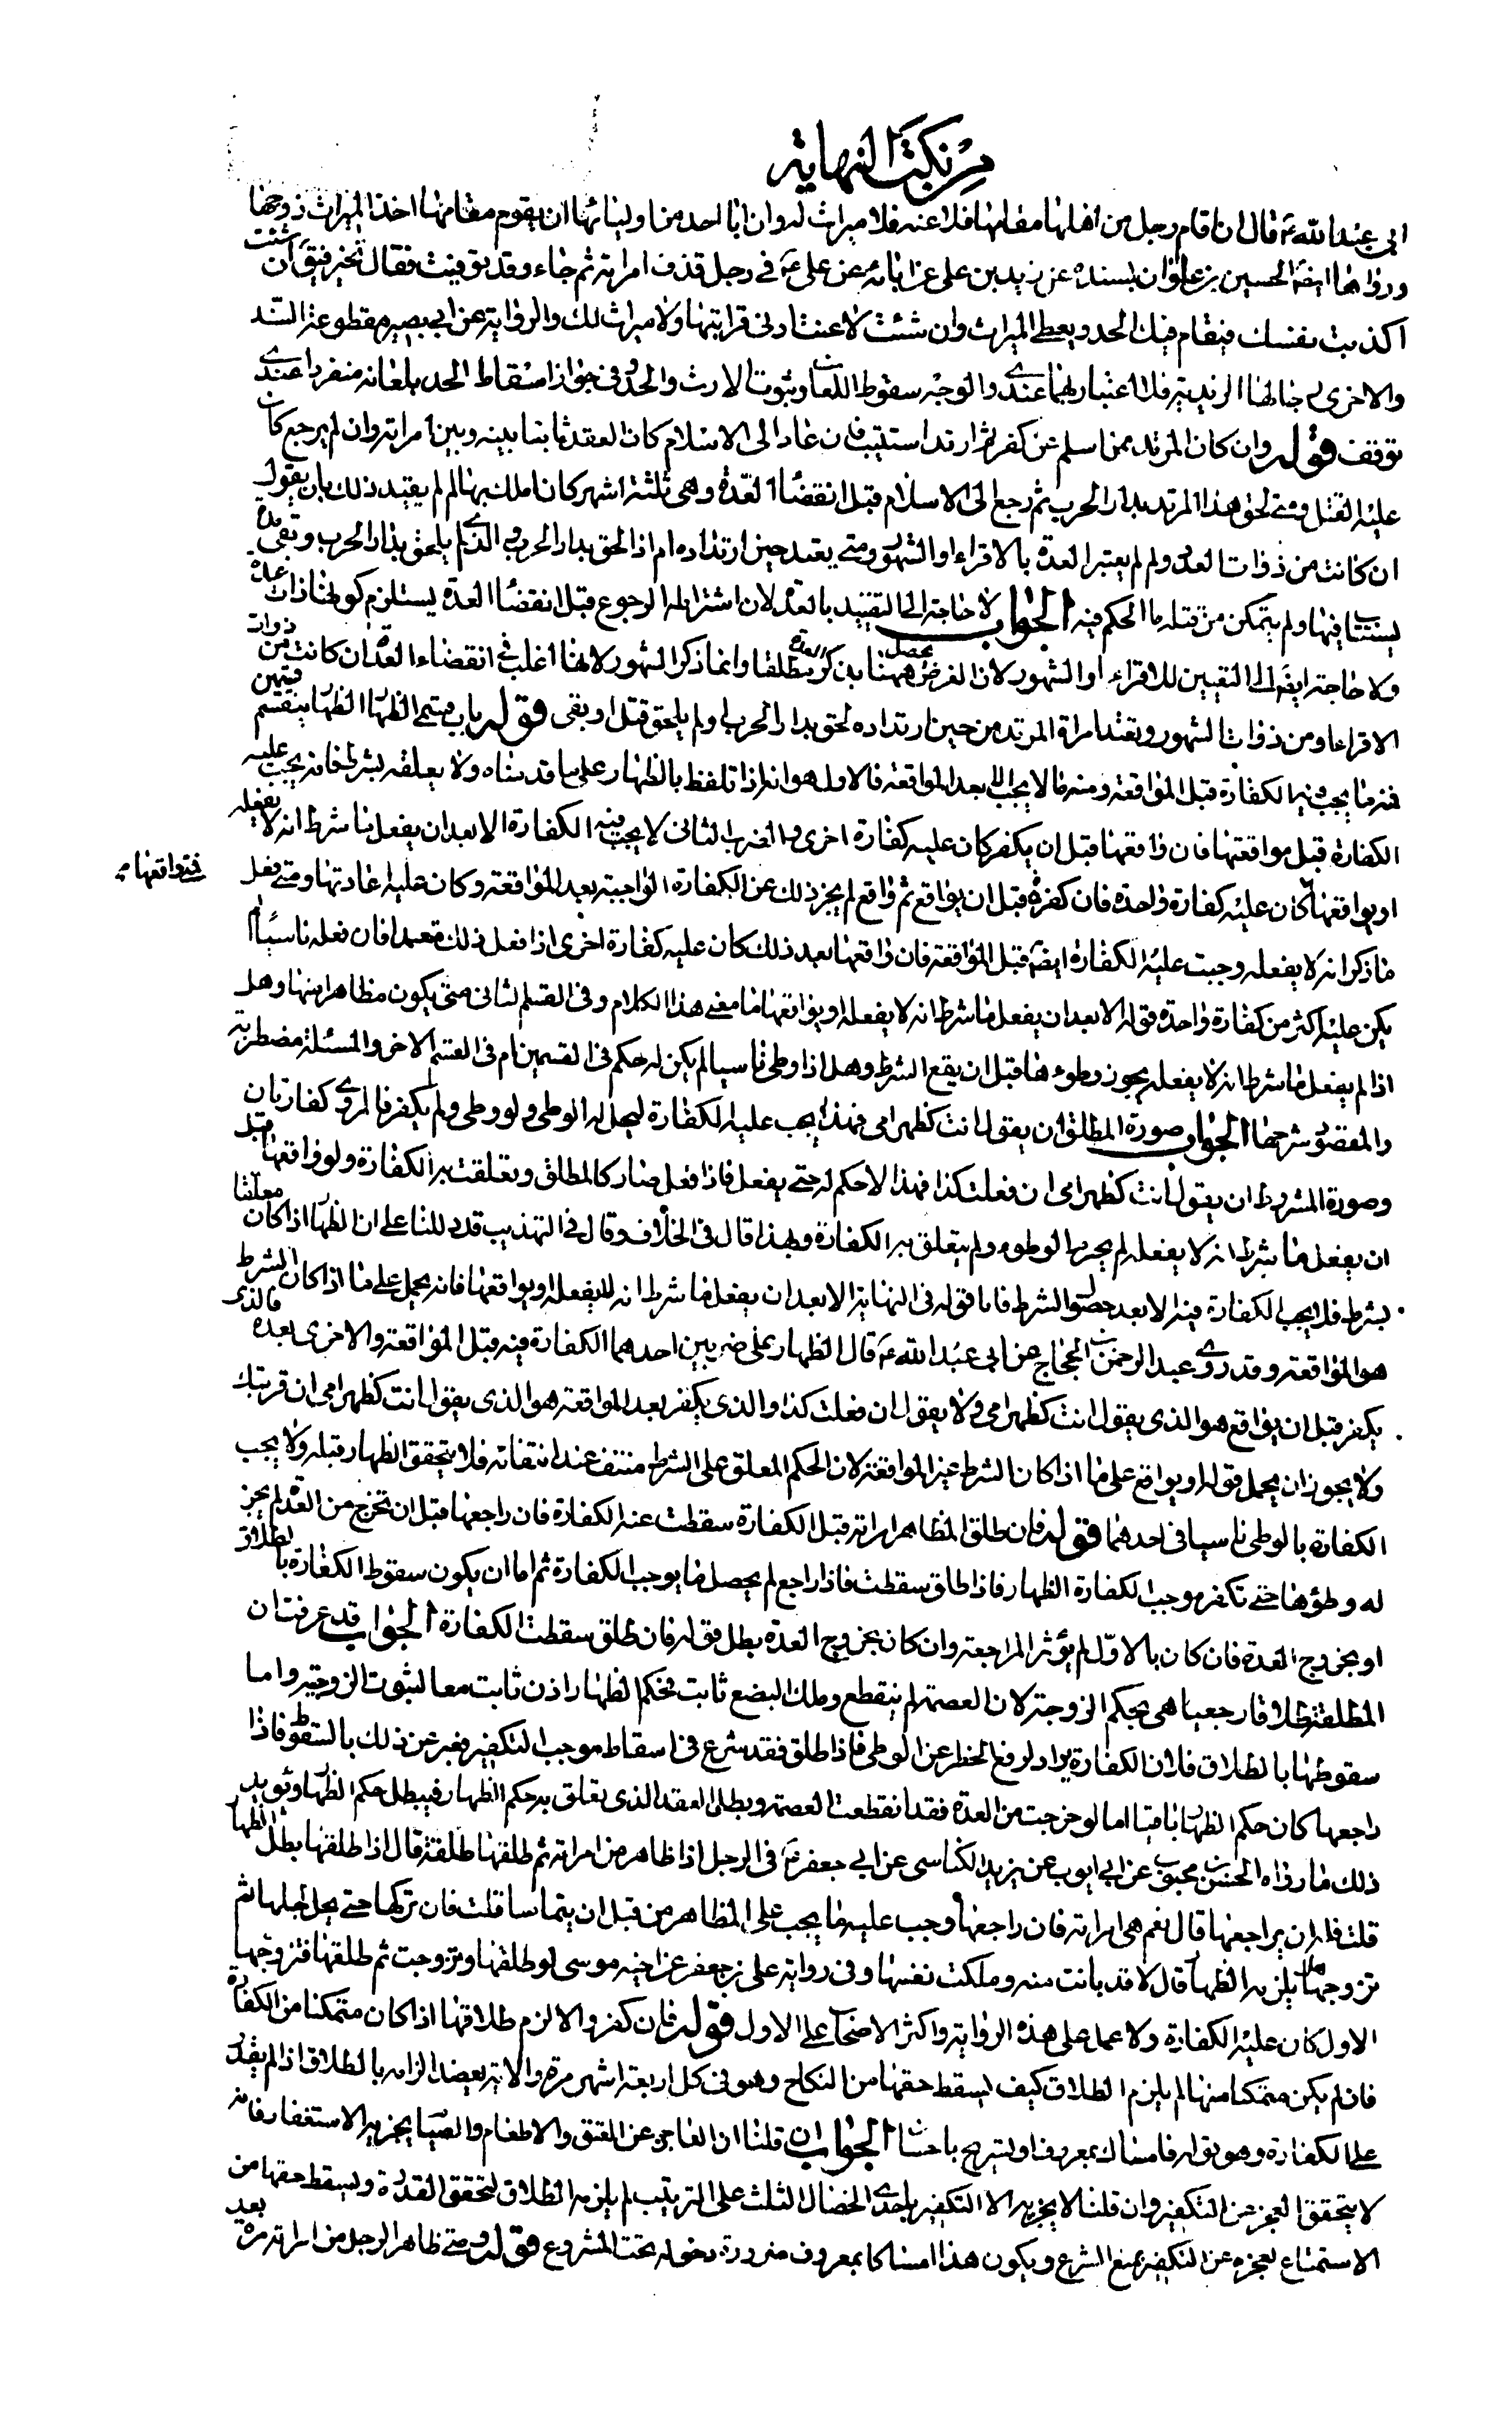 من نكت النهاية
ابي عبد الله ع قال ان قام رجل من اهلها مقامها فلاعنه فلا ميراث له وان ابا احد من اوليائها ان يقوم مقامها اخذ الميراث زوجها
ورواها ايضا الحسين بن علوان بسنده عن زيد بن علي عن ابائه عن علي ع في رجل قذف امراته ثم جاء وقد توفيت فقال تخير فيق ان شئت
اكذبت نفسك فيقام فيك الحد ويعطى الميراث وان شئت لاعنت ادنى قرابتها ولا ميراث لك والرواية عن ابي بصير مقطوعة السند
والاخرى رجالها الزيدية فلا اعتبار بهما عندي والوجه سقوط اللعان وثبوت الارث والحد وفي جواز اسقاط الحد بلعانه منفردا عندي
توقف قوله وان كان المرتد ممن اسلم عن كفر ثم ارتد استتيب فان عاد الى الاسلام كان العقد ثابتا بينه وبين امراته وان لم يرجع كان
عليه القتل ومتى لحق هذا المرتد بدار الحرب ثم رجع الى الاسلام قبل انقضاء العدة وهي ثلثة اشهر كان املك بها لم لم يقيد ذلك بان يقول
ان كانت من ذوات العدد ولم لم يعتبر العدة بالاقراء او الشهور ومتى يعتد حين ارتداده ام اذا لحق بدار الحرب والذي لم يلحق بدار الحرب وبقي مدة
يستتاب فيها ولم يتمكن من قتله ما الحكم فيه الجواب لا حاجة الى التقييد بالعدة لان اشتراط الرجوع قبل انقضاء العدة يستلزم كونها ذات عدة
ولا حاجة ايضا الى التعيين للاقراء او الشهور لان الغرض يحصل ههنا بذكر العدة مطلقا وانما ذكر الشهور لانها اغلب في انقضاء العدة ان كانت من ذوات
الاقراء او من ذوات الشهور وتعتد امراة المرتد من حين ارتداده لحق بدار الحرب او لم يلحق قتل او بقي قوله باب قسمي الظهار الظهار ينقسم قسمين
فمنه ما يجب فيه الكفارة قبل المواقعة ومنه ما لا يجب الا بعد المواقعة فالاول هو انه اذا تلفظ بالظهار على ما قدمناه ولا يعلقه بشرط فانه يجب عليه
الكفارة قبل مواقعتها فان واقعها قبل ان يكفر كان عليه كفارة اخرى والضرب الثاني لا يجب فيه الكفارة الا بعد ان يفعل ما شرط انه لا يفعله
او يواقعها كان عليه كفارة واحدة فان كفر قبل ان يواقع ثم واقع لم يجز ذلك عن الكفارة الواجبة بعد المواقعة وكان عليه اعادتها ومتى فعل
فمتى واقعها
ما ذكر انه لا يفعله وجبت عليه الكفارة ايضا قبل المواقعة فان واقعها بعد ذلك كان عليه كفارة اخرى اذا فعل ذلك متعمدا فان فعله ناسيا لم
يكن عليه اكثر من كفارة واحدة قوله الا بعد ان يفعل ما شرط انه لا يفعله او يواقعها ما معنى هذا الكلام وفي القسم الثاني متى يكون مظاهرا منها وهل
اذا لم يفعل ما شرط انه لا يفعله يجوز وطوءها قبل ان يقع الشرط وهل اذا وطي ناسيا لم يكن له حكم في القسمين ام في القسم الاخر والمسئلة مضطربة
والمقصود شرحها الجواب صورة المطلق ان يقول انت كظهر امي فهذا يجب عليه الكفارة ليحل له الوطي ولو وطي ولم يكفر فالمروي كفارتان
وصورة المشروط ان يقول انت كظهر امي ان فعلت كذا فهذا لا حكم له حتى يفعل فاذا فعل صار كالمطلق وتعلقت به الكفارة ولو واقعها قبل
ان يفعل ما شرط انه لا يفعله لم يحرم الوطوء ولم يتعلق به الكفارة وبهذا قال في الخلاف وقال في التهذيب قد دللنا على ان الظهار اذا كان معلقا
بشرط فلا يجب الكفارة فيه الا بعد حصول الشرط فاما قوله في النهاية الا بعد ان يفعل ما شرط انه لا يفعله او يواقعها فانه يحمل على ما اذا كان الشرط
هو المواقعة وقد روى عبد الرحمن بن الحجاج عن ابي عبد الله ع قال الظهار على ضربين احدهما الكفارة فيه قبل المواقعة والاخرى بعده فالذي
يكفر قبل ان يواقع هو الذي يقول انت كظهر امي ولا يقول ان فعلت كذا والذي يكفر بعد المواقعة هو الذي يقول انت كظهر امي ان قربتك
ولا يجوز ان يحمل قوله او يواقع على ما اذا كان الشرط غير المواقعة لان الحكم المعلق على الشرط منتف عند انتفائه فلا يتحقق الظهار قبله ولا يجب
الكفارة بالوطي ناسيا في احدهما قوله فان طلق المظاهر امراته قبل الكفارة سقطت عنه الكفارة فان راجعها قبل ان تخرج من العدة لم يجز
له وطؤها حتى تكفر موجب الكفارة الظهار فاذا طلق سقطت فاذا راجع لم يحصل ما يوجب الكفارة ثم اما ان يكون سقوط الكفارة بالطلاق
او بخروج العدة فان كان بالاول لم يؤثر المراجعة وان كان بخروج العدة بطل قوله فان طلق سقطت الكفارة الجواب قد عرفت ان
المطلقة طلاقا رجعيا هي بحكم الزوجة لان العصمة لم ينقطع وملك البضع ثابت فحكم الظهار اذن ثابت معا لثبوت الزوجية واما
سقوطها بالطلاق فلان الكفارة يراد لرفع الحظر عن الوطي فاذا طلق فقد شرع في اسقاط موجب التكفير فعبر عن ذلك بالسقوط فاذا
راجعها كان حكم الظهار باقيا اما لو خرجت من العدة فقد انقطعت العصمة وبطل العقد الذي تعلق به حكم الظهار فيبطل حكم الظهار ويؤيد
ذلك ما رواه الحسن بن محبوب عن ابي ايوب عن يزيد الكناسي عن ابي جعفر ع في الرجل اذا ظاهر من امراته ثم طلقها طلقة قال اذا طلقها بطل الظهار
قلت فله ان يراجعها قال نعم هي امراته فان راجعها وجب عليه ما يجب على المظاهر من قبل ان يتماسا قلت فان تركها حتى يحل اجلها ثم
تزوجها هل يلزمه الظهار قال لا قد بانت منه وملكت نفسها وفي رواية علي بن جعفر عن اخيه موسى لو طلقها وتزوجت ثم طلقها فتزوجها
الاول كان عليه الكفارة ولا عمل على هذه الرواية واكثر الاصحاب على الاول قوله فان كفر والا لزم طلاقها اذا كان متمكنا من الكفارة
فان لم يكن متمكنا منها لم يلزم الطلاق كيف يسقط حقها من النكاح وهو في كل اربعة اشهر مرة والاية يعضد الزامه بالطلاق اذا لم يقدر
على الكفارة وهو قوله فامساك بمعروف او تسريح باحسان الجواب ان قلنا ان العاجز عن العتق والاطعام والصيام يجزيه الاستغفار فانه
لا يتحقق العجز عن التكفير وان قلنا لا يجزيه الا التكفير باحدى الخصال الثلث على الترتيب لم يلزمه الطلاق لتحقق القدرة ويسقط حقها من
الاستمتاع لعجزه عن التكفير بمنع الشرع ويكون هذا امساكا بمعروف ضرورة دخوله تحت المشروع قوله ومتى ظاهر الرجل من امراته مرة بعد